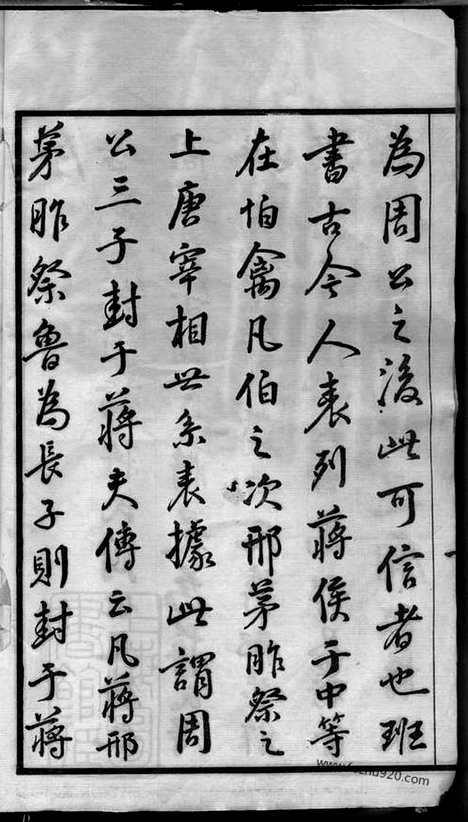 為周公之後此可信者也班
書古今人表列蔣侯于中等
在伯禽凡伯之次邢茅胙祭之
上唐宰相世系表據此謂周
公三子封于蔣夫傳云凡蔣邢
茅胙祭魯為長子則封于蔣